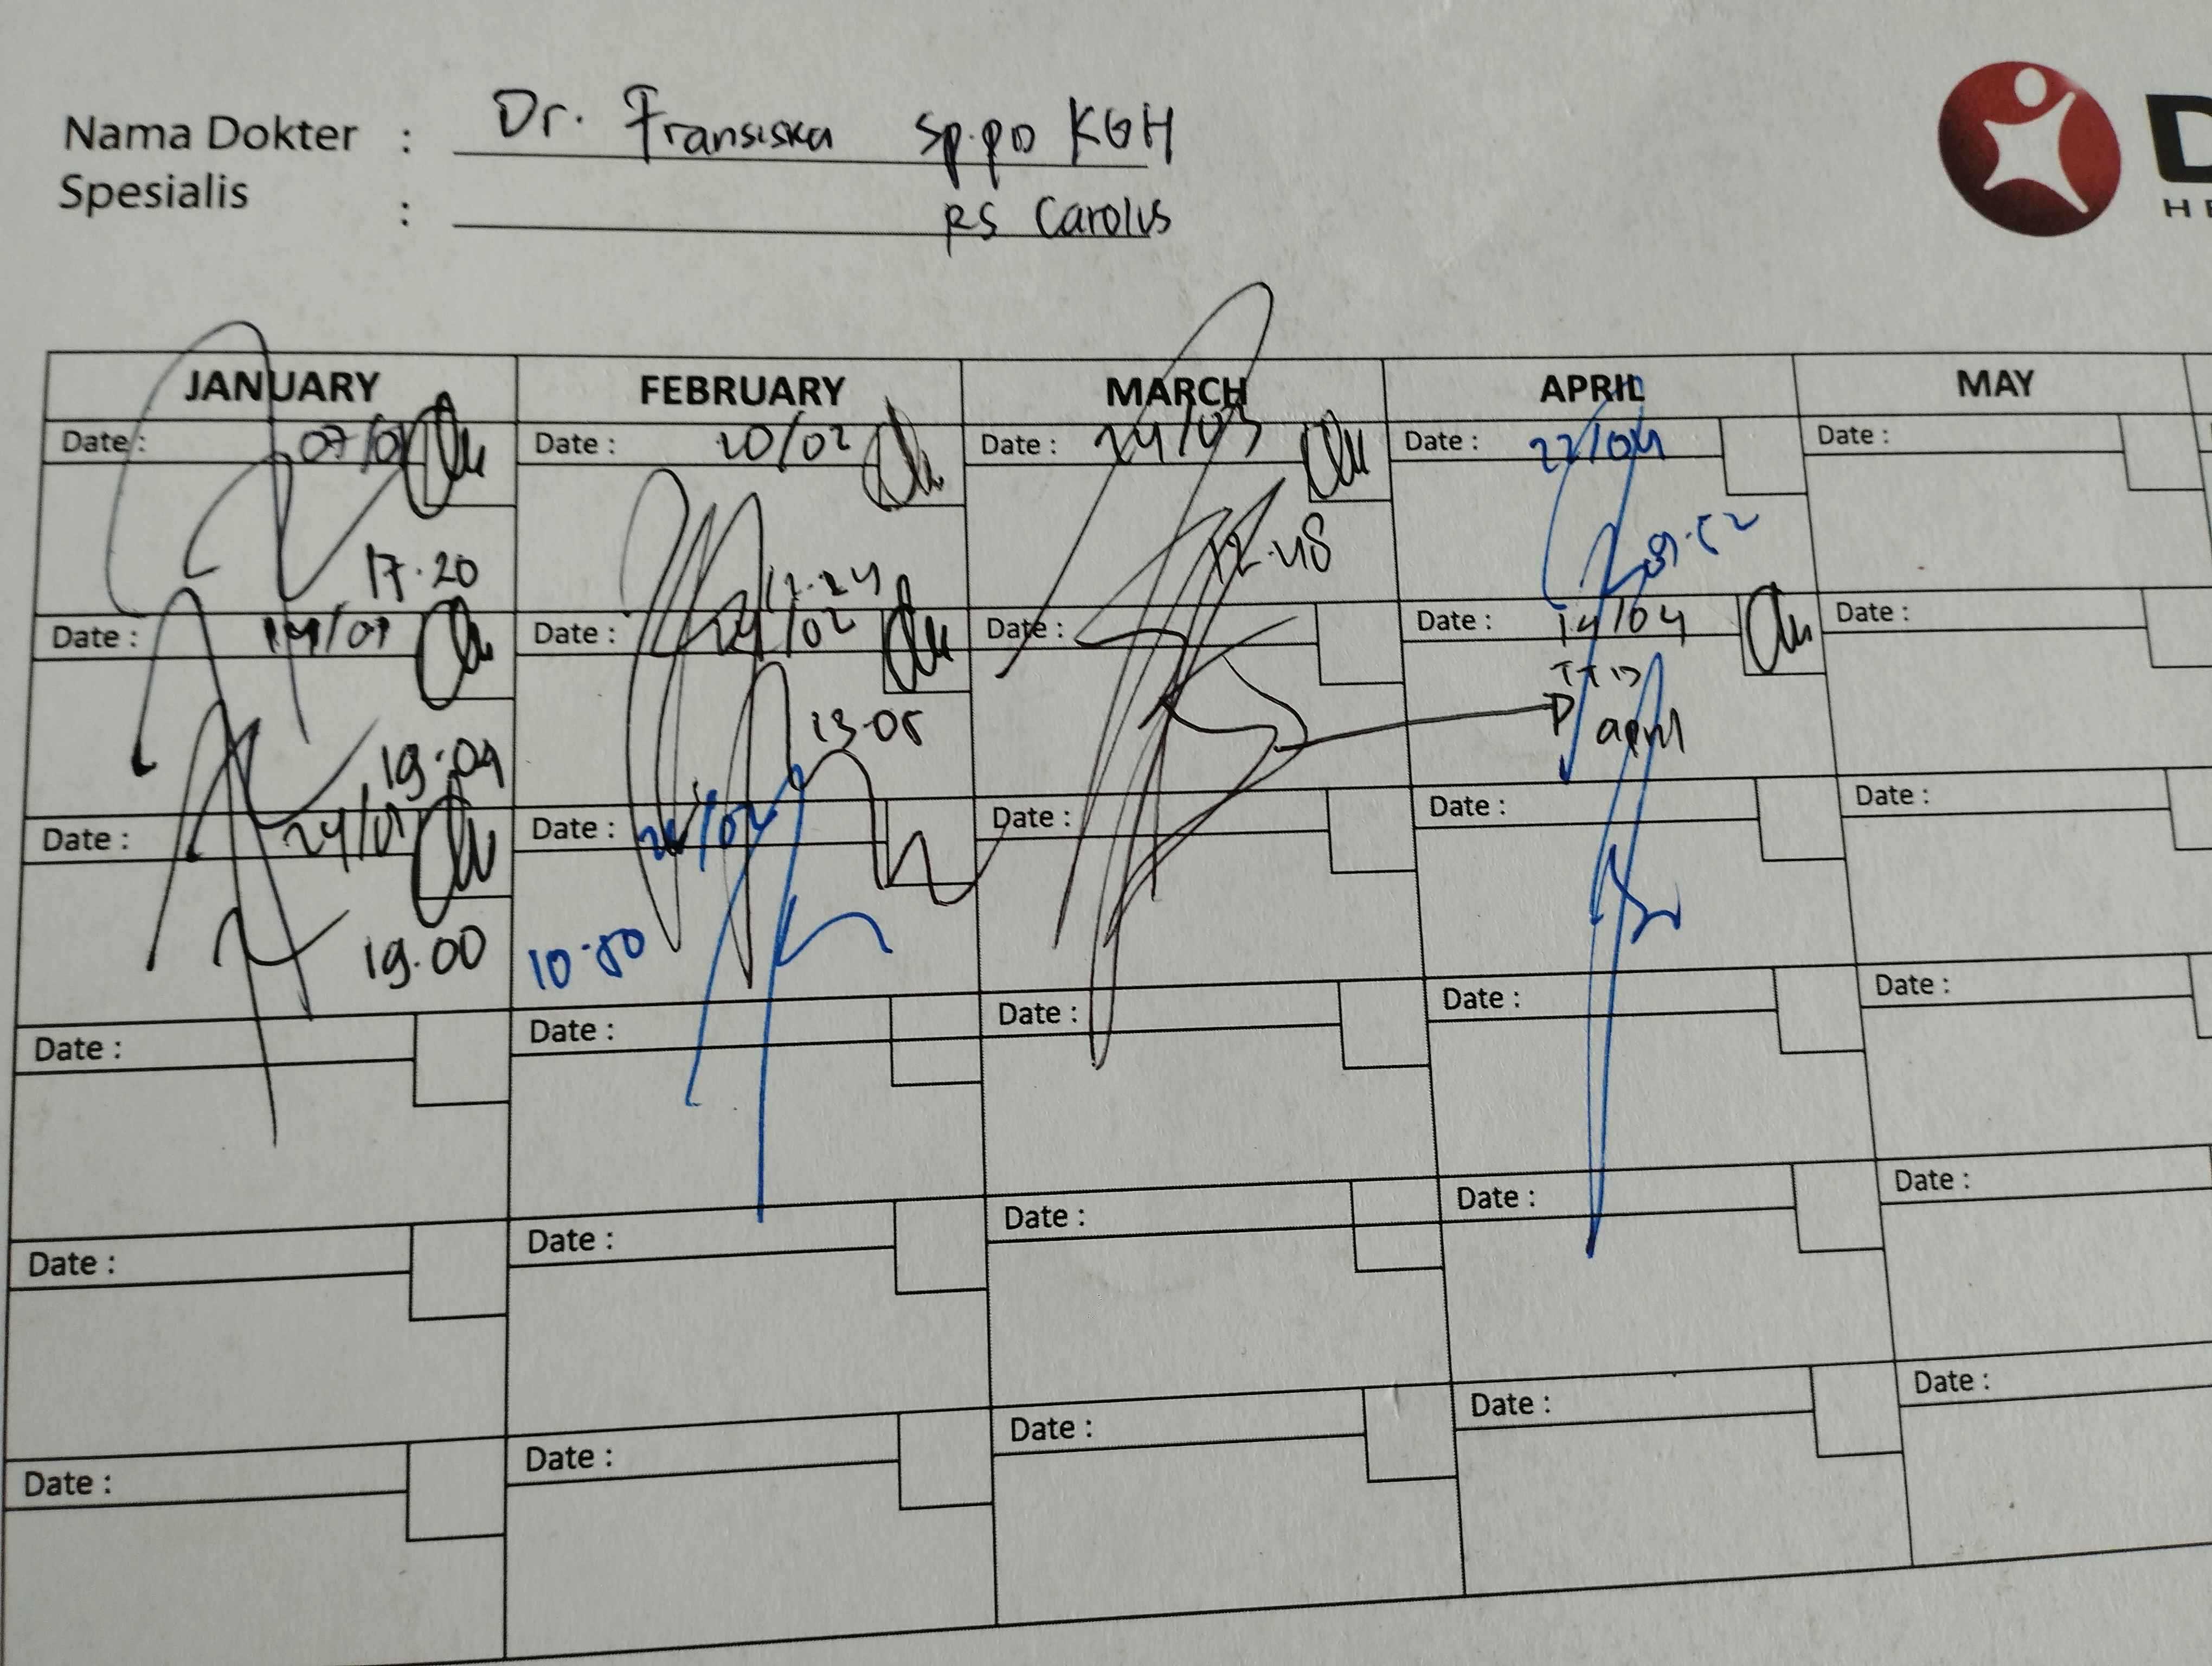 Nama Dokter : Dr. Fransiska Sp.PD KGH
Spesialis : RS Carolus
JANUARY FEBRUARY MARCH APRIL MAY
Date : 07/01 Date : 20/02 Date : 24/03 Date : 22/04 Date :
17.20 12.48
Date : 14/01 Date : 24/02 Date : Date : 14/04 Date :
TTD
19.09 13.05 april
Date : 24/01 Date : /02 Date : Date : Date :
19.00 10.50
Date : Date : Date : Date : Date :
Date : Date : Date : Date : Date :
Date : Date : Date : Date : Date :